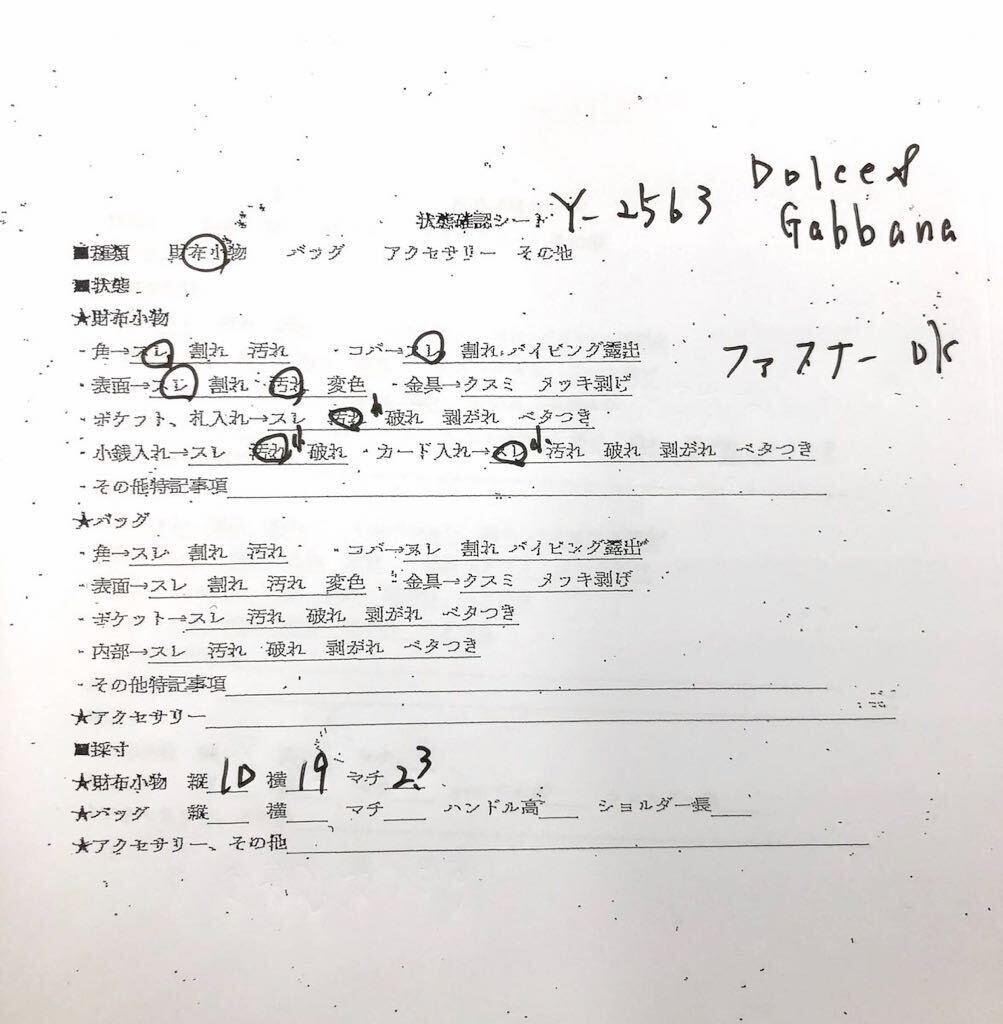 Dolce &
状態確認シート Y-2563
Gabbana
■種類 財布小物 バッグ アクセサリー その他
■状態
★財布小物
・角→スレ 割れ 汚れ ・コバ→スレ 割れ パイピング露出
ファスナー OK
・表面→スレ 割れ 汚れ 変色 ・金具→クスミ メッキ剥げ
・ポケット、札入れ→スレ 汚れ 破れ 剥がれ ベタつき
・小銭入れ→スレ 汚れ 破れ ・カード入れ→スレ 汚れ 破れ 剥がれ ベタつき
・その他特記事項
★バッグ
・角→スレ 割れ 汚れ ・コバ→スレ 割れ パイピング露出
・表面→スレ 割れ 汚れ 変色 ・金具→クスミ メッキ剥げ
・ポケット→スレ 汚れ 破れ 剥がれ ベタつき
・内部→スレ 汚れ 破れ 剥がれ ベタつき
・その他特記事項
★アクセサリー
■採寸
★財布小物 縦10 横19 マチ2.3
★バッグ 縦 横 マチ ハンドル高 ショルダー長
★アクセサリー、その他